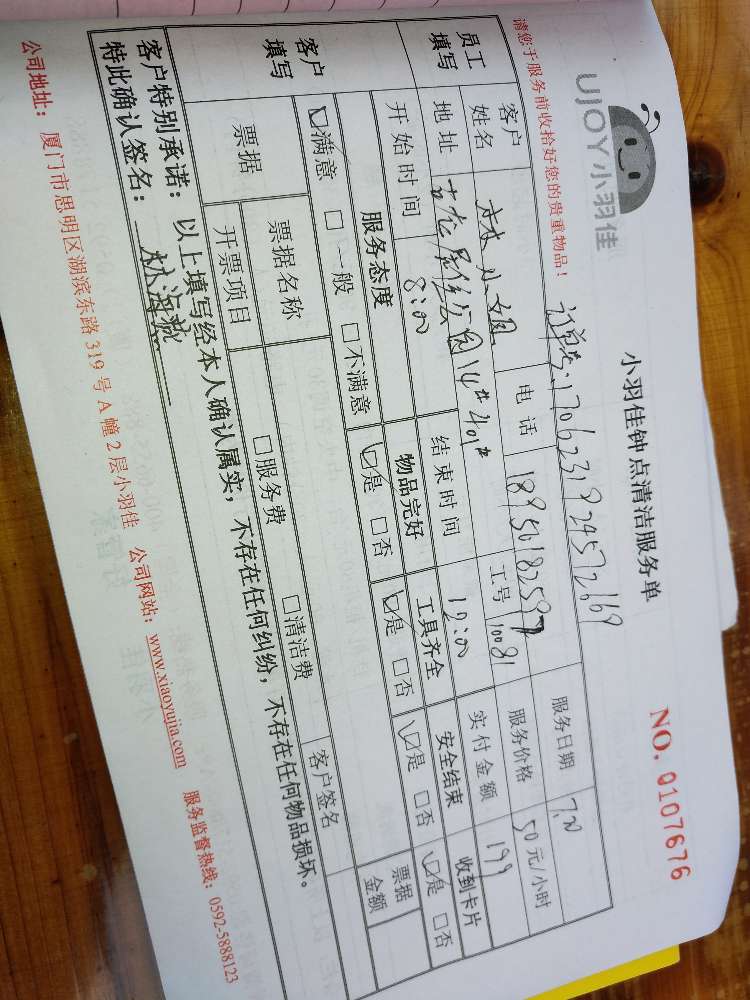 UJOY小羽佳
小羽佳钟点清洁服务单
NO. 0107676
请您于服务前收拾好您的贵重物品！
订单号：1706231924572669
服务日期 7.20
员工填写
客户姓名 林小姐 电话 18950182597 服务价格 50元/小时
地址 古龙居住公园14#401# 工号 10081 实付金额 199
开始时间 8:00 结束时间 12:00
客户填写
服务态度 物品完好 工具齐全 安全结束 收到卡片
☑满意 □一般 □不满意 ☑是 □否 ☑是 □否 ☑是 □否 ☑是 □否
票据 票据名称 □服务费 □清洁费 客户签名 票据金额
开票项目
客户特别承诺：以上填写经本人确认属实，不存在任何纠纷，不存在任何物品损坏。
特此确认签名：林海
公司地址：厦门市思明区湖滨东路319号A幢2层小羽佳 公司网站：www.xiaoyujia.com 服务监督热线：0592-5888123